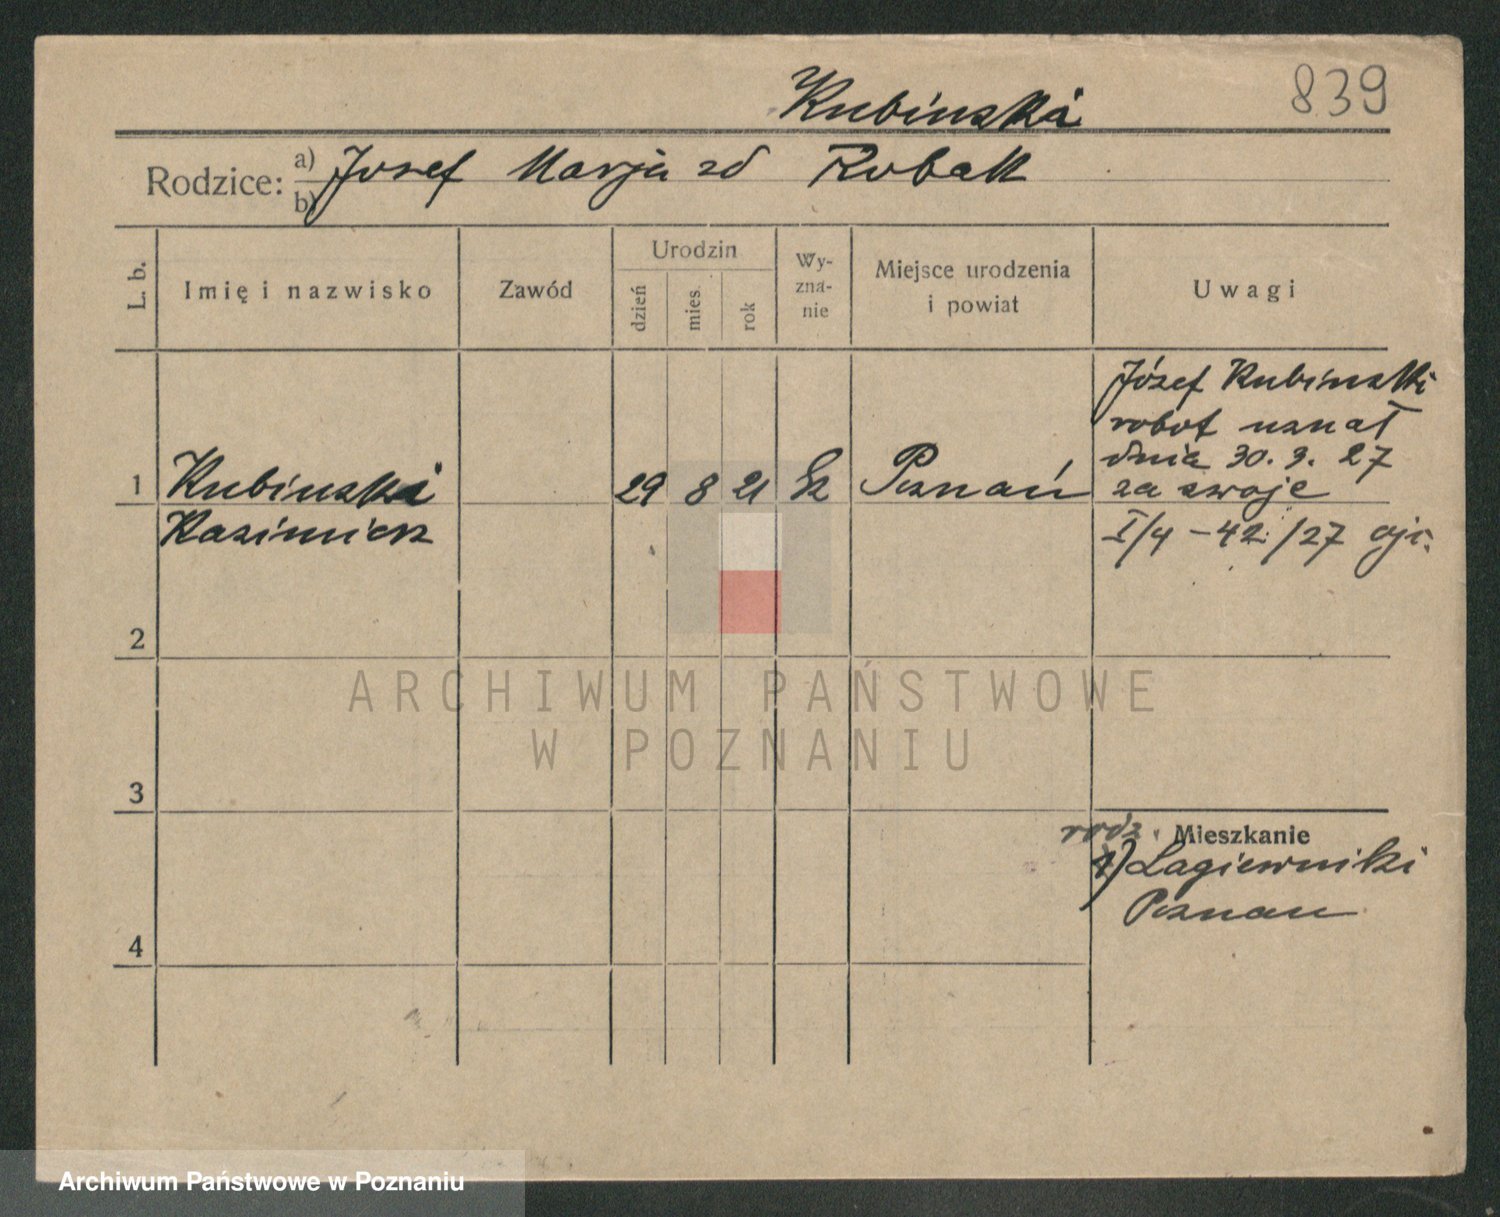 839
Kubinska
Rodzice: a) Josef Marja zd Robak
b)
L. b.
Imię i nazwisko
Zawód
Urodzin
dzień
mies.
rok
Wy-
zna-
nie
Miejsce urodzenia
i powiat
Uwagi
1
Kubinski
Kazimierz
29 8 21
Poznań
Józef Kubinski
robot uznał
dnia 30. 3. 27
za swoje
I/4 - 42 /27
2
3
4
rodz. Mieszkanie
1) Lagiewniki
Poznan
ARCHIWUM PAŃSTWOWE
W POZNANIU
Archiwum Państwowe w Poznaniu